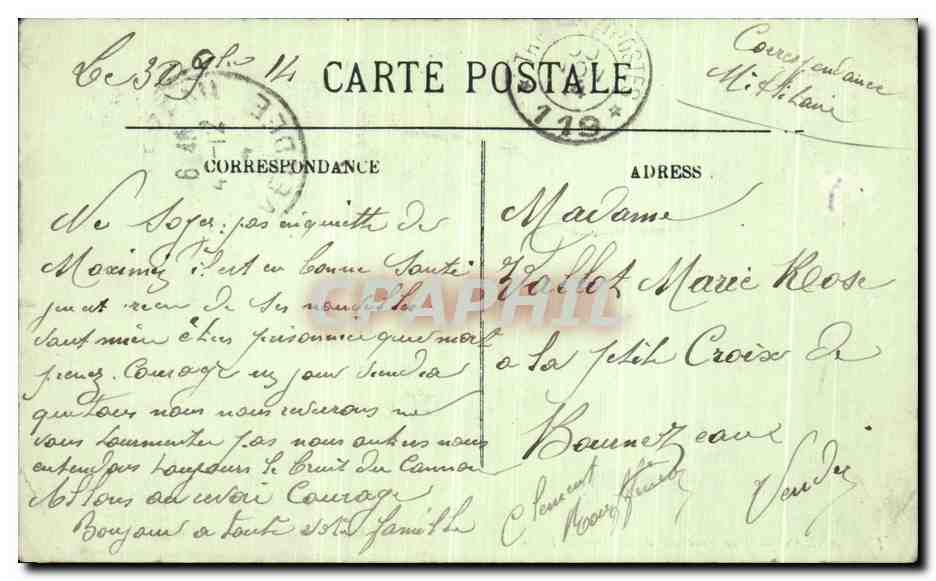 Le 30 9bre 14
CARTE POSTALE
Correspondance
Militaire
119
CORRESPONDANCE
ADRESS
Ne Soyer pas inquiette de
Maximin il est en bonne Santé
jai recu de ses nouvelles
vaut mieu être prisonnier que mort
prenez Courage un jour viendra
que tous nous nous reverons ne
vous tourmenter pas nous autres nous
entendons toujours le bruit du Cannon
Allons au revoir Courage
Bonjour a toute votre famille
Madame
Vallot Marie Rose
a la ptit Croix de
Bournezeaux
Vendée
Clement
CPAPHIL